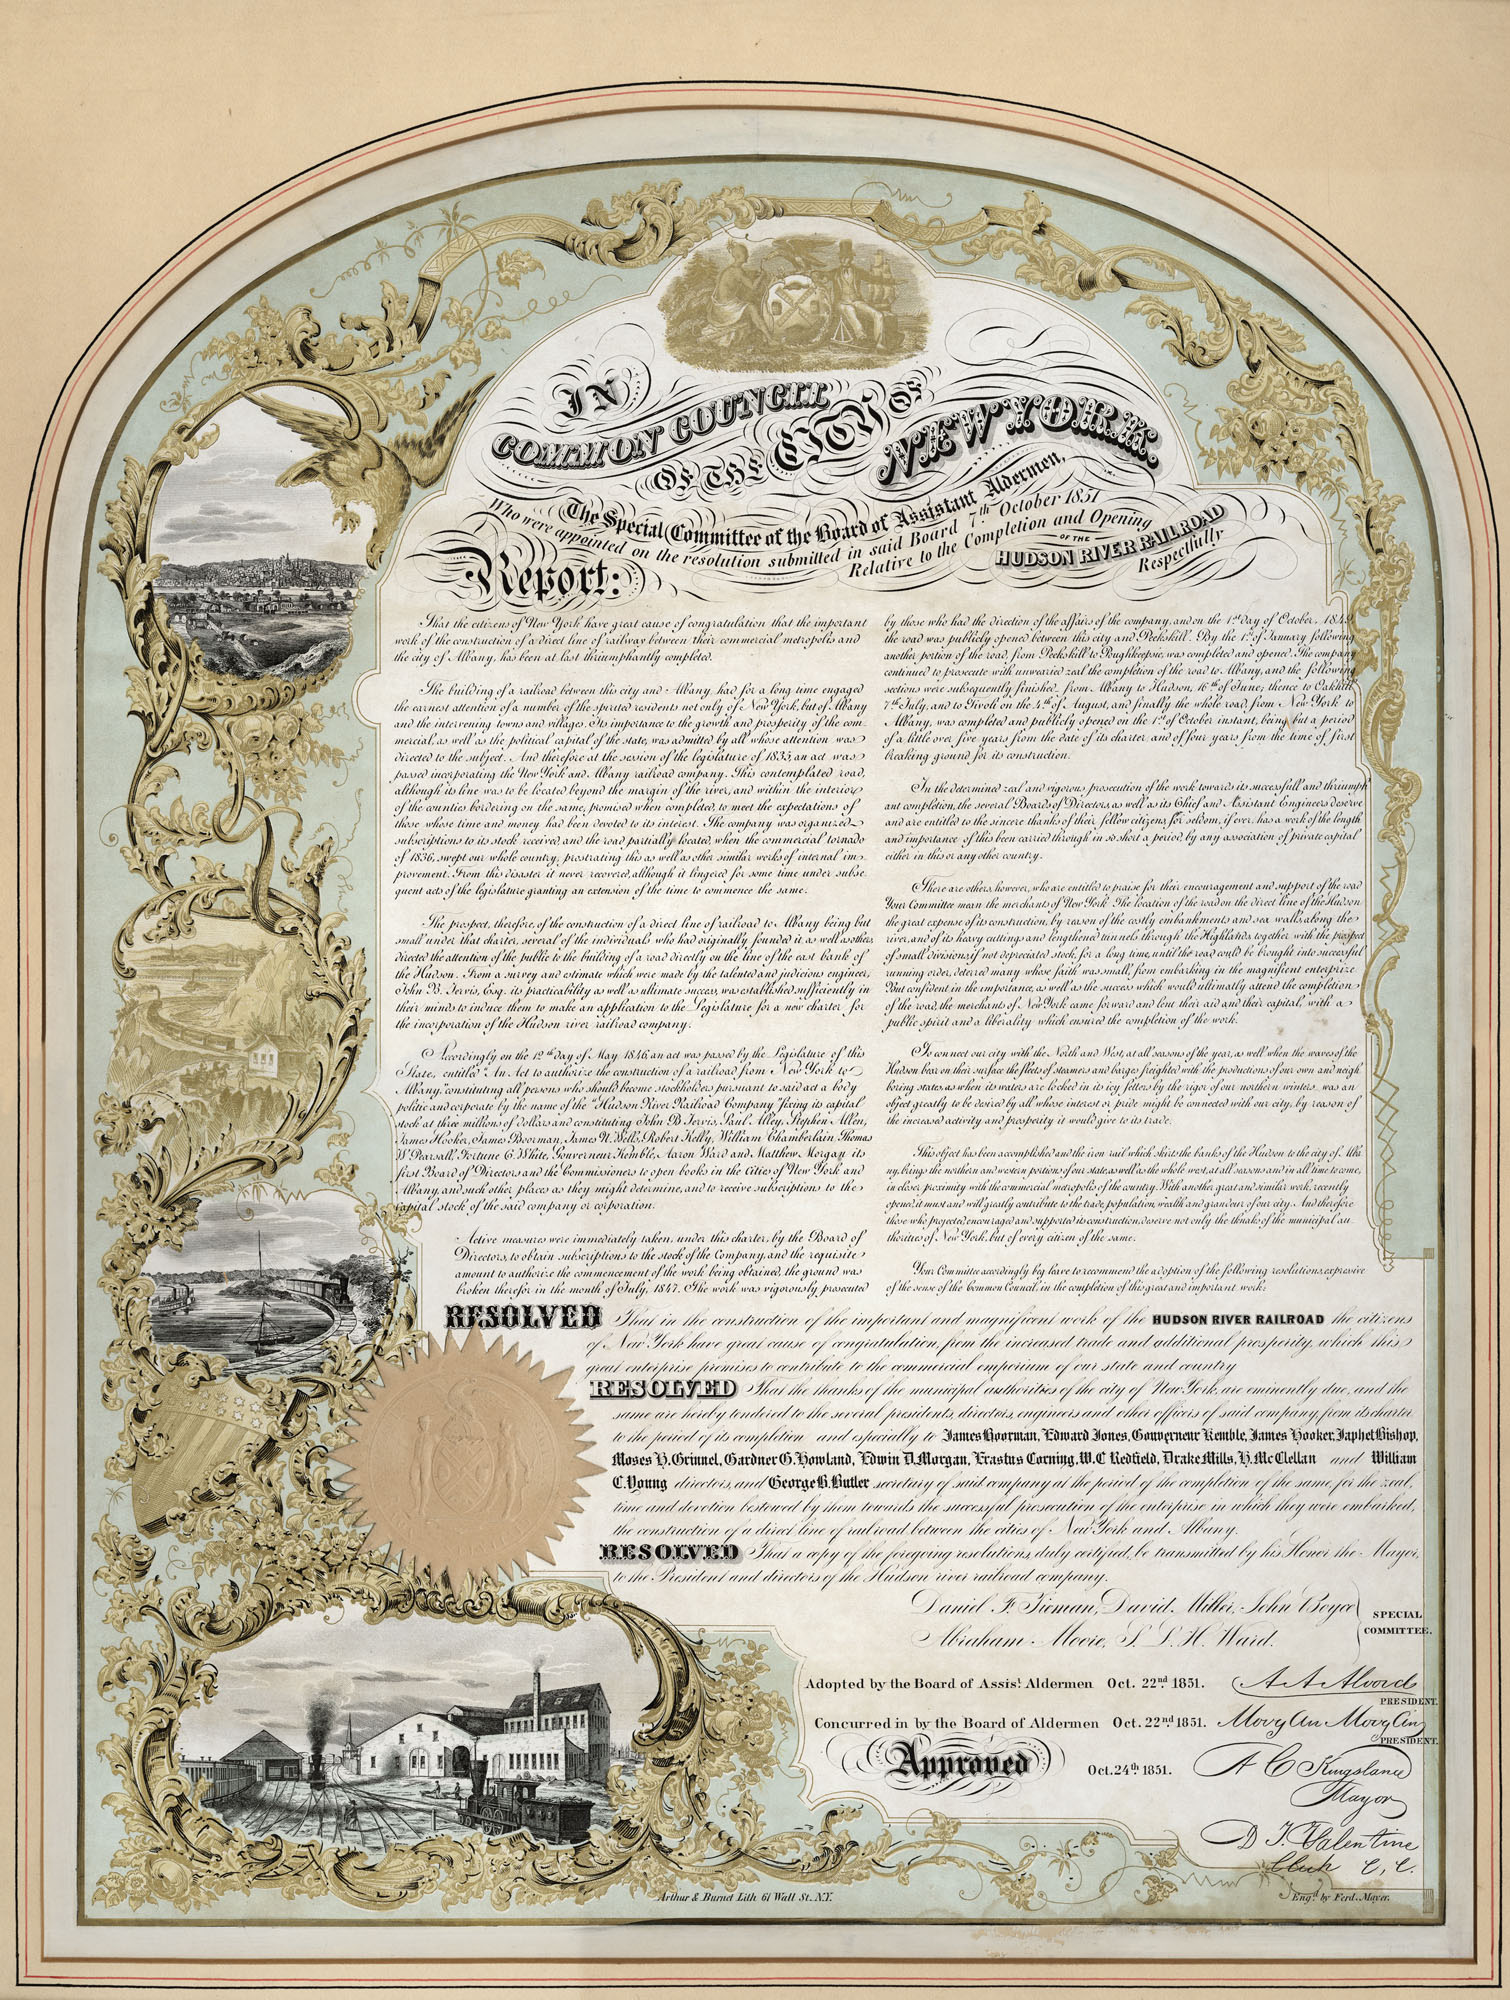 IN
COMMON COUNCIL
OF THE CITY OF
NEW YORK.
The Special Committee of the Board of Assistant Aldermen,
Who were appointed on the resolution submitted in said Board 7th October 1851
Relative to the Completion and Opening
OF THE
HUDSON RIVER RAILROAD
Respectfully
Report:
That the citizens of New York have great cause of congratulation that the important
work of the construction of a direct line of railway between their commercial metropolis and
the city of Albany, has been at last thriumphantly completed.
The building of a railroad between this city and Albany, had for a long time engaged
the earnest attention of a number of the spirited residents not only of New York, but of Albany
and the intervening towns and villages. Its importance to the growth and prosperity of the com
mercial, as well as the political capital of the state, was admitted by all whose attention was
directed to the subject. And therefore at the session of the legislature of 1833, an act was
passed incorporating the New York and Albany railroad company. This contemplated road,
although its line was to be located beyond the margin of the river, and within the interior
of the counties bordering on the same, promised when completed, to meet the expectations of
those whose time and money had been devoted to its interest. The company was organized
subscriptions to its stock received and the road partially located, when the commercial tornado
of 1836, swept our whole country, prostrating this as well as other similar works of internal im
provement. From this disaster it never recovered, although it lingered for some time under subse
quent acts of the legislature granting an extension of the time to commence the same.
The prospect, therefore, of the construction of a direct line of railroad to Albany being but
small under that charter, several of the individuals who had originally founded it as well as others
directed the attention of the public to the building of a road directly on the line of the east bank of
the Hudson. From a survey and estimate which were made by the talented and judicious engineer,
John B. Jervis, Esq. its practicability as well as ultimate success, was established sufficiently in
their minds to induce them to make an application to the Legislature for a new charter for
the incorporation of the Hudson river railroad company.
Accordingly on the 12th day of May 1846 an act was passed by the Legislature of this
State, entitled "An Act to authorize the construction of a railroad from New York to
Albany," constituting all persons who should become stockholders pursuant to said act a body
politic and corporate by the name of the "Hudson River Railroad Company" fixing its capital
stock at three millions of dollars and constituting John B. Jervis, Saul Alley, Stephen Allen,
James Hooker, James Boorman, James N. Wells, Robert Kelly, William Chamberlain, Thomas
W. Pearsall, Fortune C. White, Gouverneur Kemble, Aaron Ward and Matthew Morgan its
first Board of Directors and the Commissioners to open books in the Cities of New York and
Albany, and such other places as they might determine, and to receive subscriptions to the
capital stock of the said company or corporation.
Active measures were immediately taken, under this charter, by the Board of
Directors, to obtain subscriptions to the stock of the Company, and the requisite
amount to authorize the commencement of the work being obtained, the ground was
broken therefor in the month of July, 1847. The work was vigorously prosecuted
by those who had the direction of the affairs of the company, and on the 1st day of October, 1849,
the road was publicly opened between this city and Peekskill. By the 1st of January following
another portion of the road, from Peekskill to Poughkeepsie, was completed and opened. The company
continued to prosecute with unwearied zeal the completion of the road to Albany, and the following
sections were subsequently finished, from Albany to Hudson, 16th of June; thence to Oakhill
7th July, and to Tivoli on the 4th of August, and finally the whole road, from New York to
Albany, was completed and publicly opened on the 1st of October instant, being but a period
of a little over five years from the date of its charter and of four years from the time of first
breaking ground for its construction.
In the determined zeal and vigorous prosecution of the work towards its successfull and thriumph
ant completion, the several Boards of Directors as well as its Chief and Assistant Engineers deserve
and are entitled to the sincere thanks of their fellow citizens, for seldom, if ever, has a work of the length
and importance of this been carried through in so short a period, by any association of private capital
either in this or any other country.
There are others, however, who are entitled to praise for their encouragement and support of the road
Your Committee mean the merchants of New York. The location of the road on the direct line of the Hudson
the great expense of its construction, by reason of the costly embankments and sea walls, along the
river, and of its heavy cuttings and lengthened tunnels through the Highlands, together with the prospect
of small divisions, if not depreciated stock, for a long time, until the road could be brought into successful
running order, deterred many whose faith was small, from embarking in the magnificent enterprize.
But confident in the importance, as well as the success which would ultimatly attend the completion
of the road, the merchants of New York came forward and lent their aid and their capital, with a
public spirit and a liberality which ensured the completion of the work.
To connect our city with the North and West, at all seasons of the year, as well when the waves of the
Hudson bear on their surface the fleets of steamers and barges freighted with the productions of our own and neigh
boring states, as when its waters are locked in its icy fetters by the rigor of our northern winters, was an
object greatly to be desired by all whose interest or pride might be connected with our city, by reason of
the increased activity and prosperity it would give to its trade.
This object has been accomplished and the iron rail which skirts the banks of the Hudson to the city of Alba
ny, brings the northern and western portions of our state, as well as the whole west, at all seasons and in all time to come,
in closer proximity with the commercial metropolis of the country. With another great and similar work, recently
opened, it must and will greatly contribute to the trade, population, wealth and grandeur of our city. And therefore
those who projected, encouraged and supported its construction, deserve not only the thnaks of the municipal au
thorities of New York, but of every citizen of the same.
Your Committee accordingly beg leave to recommend the adoption of the following resolutions, expressive
of the sense of the Common Council, in the completion of this great and important work:
RESOLVED That in the construction of the important and magnificent work of the HUDSON RIVER RAILROAD the citizens
of New York have great cause of congratulation, from the increased trade and additional prosperity, which this
great enterprise promises to contribute to the commercial emporium of our state and country
RESOLVED That the thanks of the municipal authorities of the city of New York, are eminently due, and the
same are hereby tendered to the several presidents, directors, engineers and other officers of said company, from its charter
to the period of its completion and especially to James Boorman, Edward Jones, Gouverneur Kemble, James Hooker, Japhet Bishop,
Moses H. Grinnel, Gardner G. Howland, Edwin D. Morgan, Erastus Corning, W. C. Redfield, Drake Mills, H. McClellan and William
C. Young directors, and George B. Butler secretary of said company at the period of the completion of the same, for the zeal,
time and devotion bestowed by them towards the successful prosecution of the enterprise in which they were embarked,
the construction of a direct line of railroad between the cities of New York and Albany.
RESOLVED That a copy of the foregoing resolutions, duly certified, be transmitted by his Honor the Mayor,
to the President and directors of the Hudson river railroad company.
Daniel F. Tieman, David Miller, John Boyce
Abraham Moore, S. L. H. Ward.
SPECIAL
COMMITTEE.
Adopted by the Board of Assist. Aldermen Oct. 22nd 1851. A A Alvord
PRESIDENT.
Concurred in by the Board of Aldermen Oct. 22nd 1851. Morgan Morgans
PRESIDENT.
Approved Oct. 24th 1851. A C Kingsland
Mayor
D. T. Valentine
Clerk C. C.
Arthur & Burnet Lith 61 Wall St. N.Y.
Engd. by Ferd. Mayer.